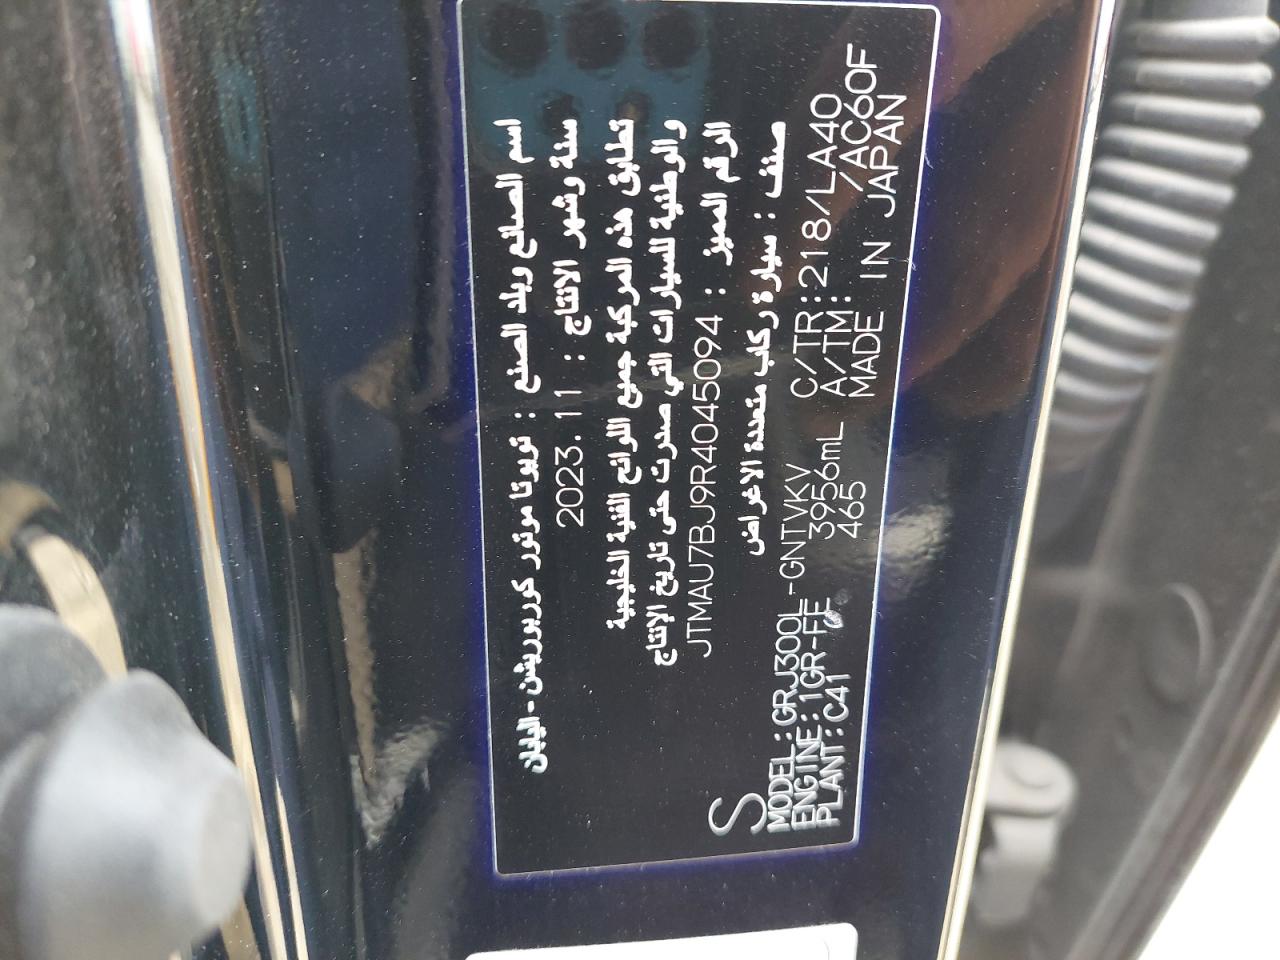 اسم الصانع وبلد الصنع : تويوتا موتور كوربوريشن - اليابان
سنة وشهر الانتاج : 2023.11
تطابق هذه المركبة جميع اللوائح الفنية الخليجية
والوطنية للسيارات التي صدرت حتى تاريخ الإنتاج
الرقم المميز : JTMAU7BJ9R4045094
صنف : سيارة ركاب متعددة الاغراض
S
MODEL:GRJ300L-GNTVKV C/TR:218/LA40
ENGINE:1GR-FE 3956mL A/TM: /AC60F
PLANT:C41 465 MADE IN JAPAN